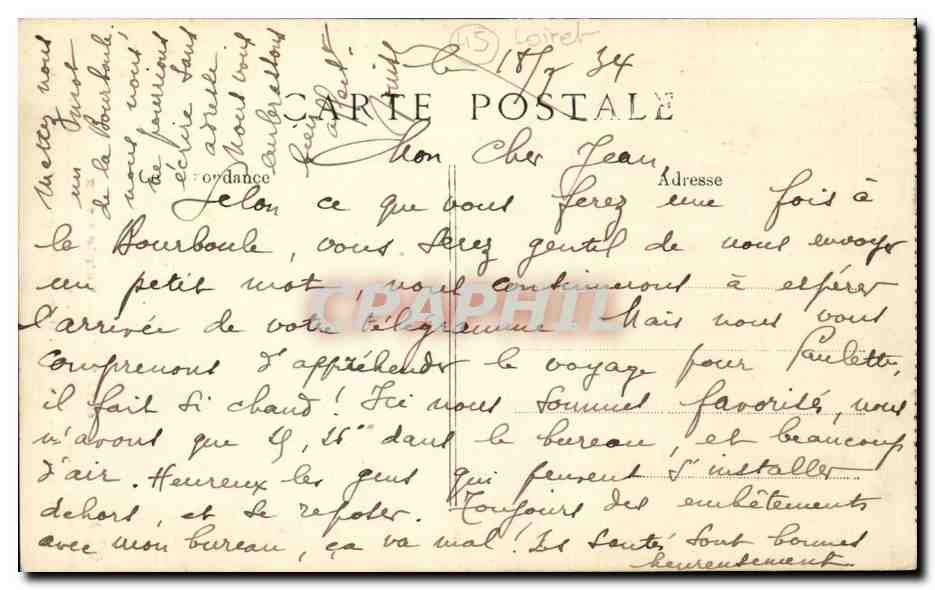 45 Loiret
le 18/7 34
CARTE POSTALE
Mon cher Jean,
Correspondance
Adresse
Selon ce que vous ferez une fois à
la Bourboule, vous serez gentil de nous envoyer
un petit mot, nous continuerons à espérer
l'arrivée de votre télégramme. Mais nous vous
comprenons d'appréhender le voyage pour Paulette,
il fait si chaud! Ici nous sommes favorisés, nous
n'avons que 25° dans le bureau, et beaucoup
d'air. Heureux les gens qui peuvent s'installer
dehors, et se reposer. Toujours des embêtements
avec mon bureau, ça va mal! Les santés sont bonnes
heureusement.
Mettez nous
un mot
de la Bourboule,
nous vous
ne pourrions
écrire sans
adresse
Nous vous
embrassons
bien
CPAPHIL